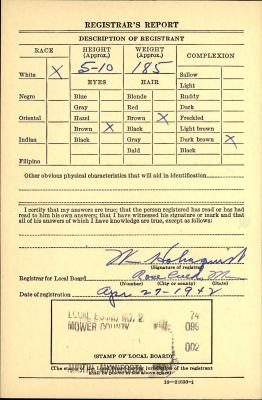 REGISTRAR'S REPORT
DESCRIPTION OF REGISTRANT
RACE
HEIGHT (Approx.)
WEIGHT (Approx.)
COMPLEXION
White X
5-10
185
Sallow
Light
EYES
HAIR
Negro
Blue
Blonde
Ruddy
Gray
Red
Dark
Oriental
Hazel
Brown X
Freckled
Brown X
Black
Light brown
Indian
Black
Gray
Dark brown X
Bald
Black
Filipino
Other obvious physical characteristics that will aid in identification
I certify that my answers are true; that the person registered has read or has had
read to him his own answers; that I have witnessed his signature or mark and that
all of his answers of which I have knowledge are true, except as follows:
(Signature of registrar)
Registrar for Local Board
(Number) (City or county) (State)
Date of registration Apr 27-1942
LOCAL BOARD NO. 2 74
MOWER COUNTY 095
002
(STAMP OF LOCAL BOARD)
(The stamp of the Local Board having jurisdiction of the registrant
shall be placed in the above space)